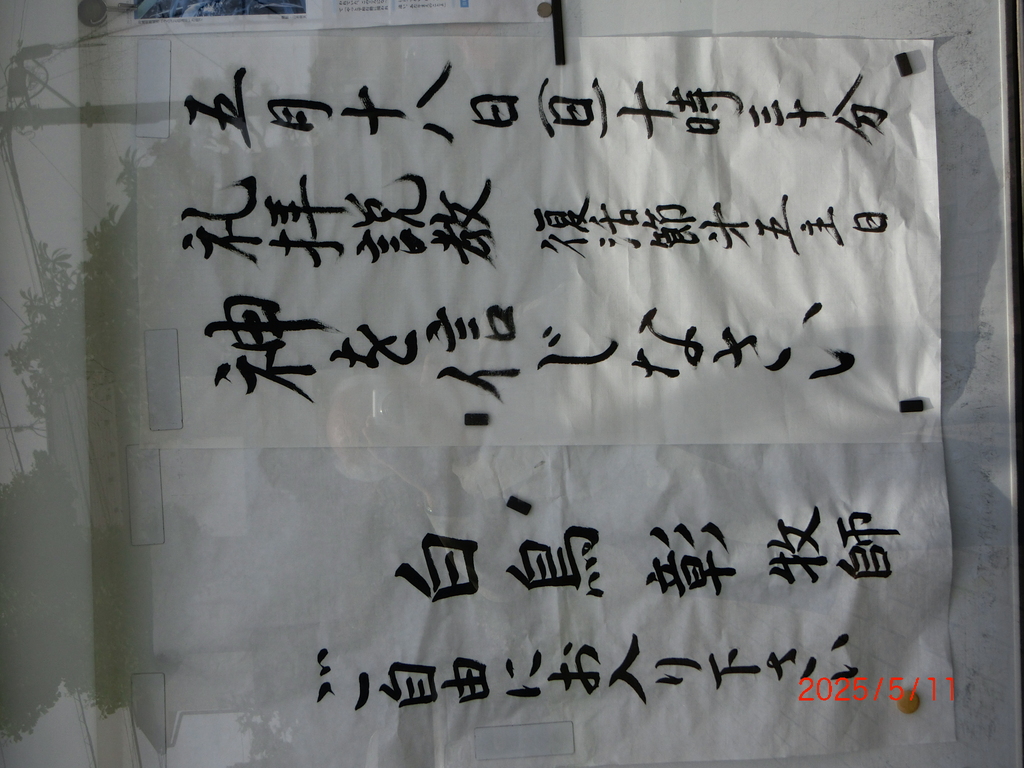 五月十八日(日)十時三十分
礼拝説教 復活節第五主日
神を信じなさい
白鳥 彰 牧師
ご自由にお入り下さい
2025/5/11